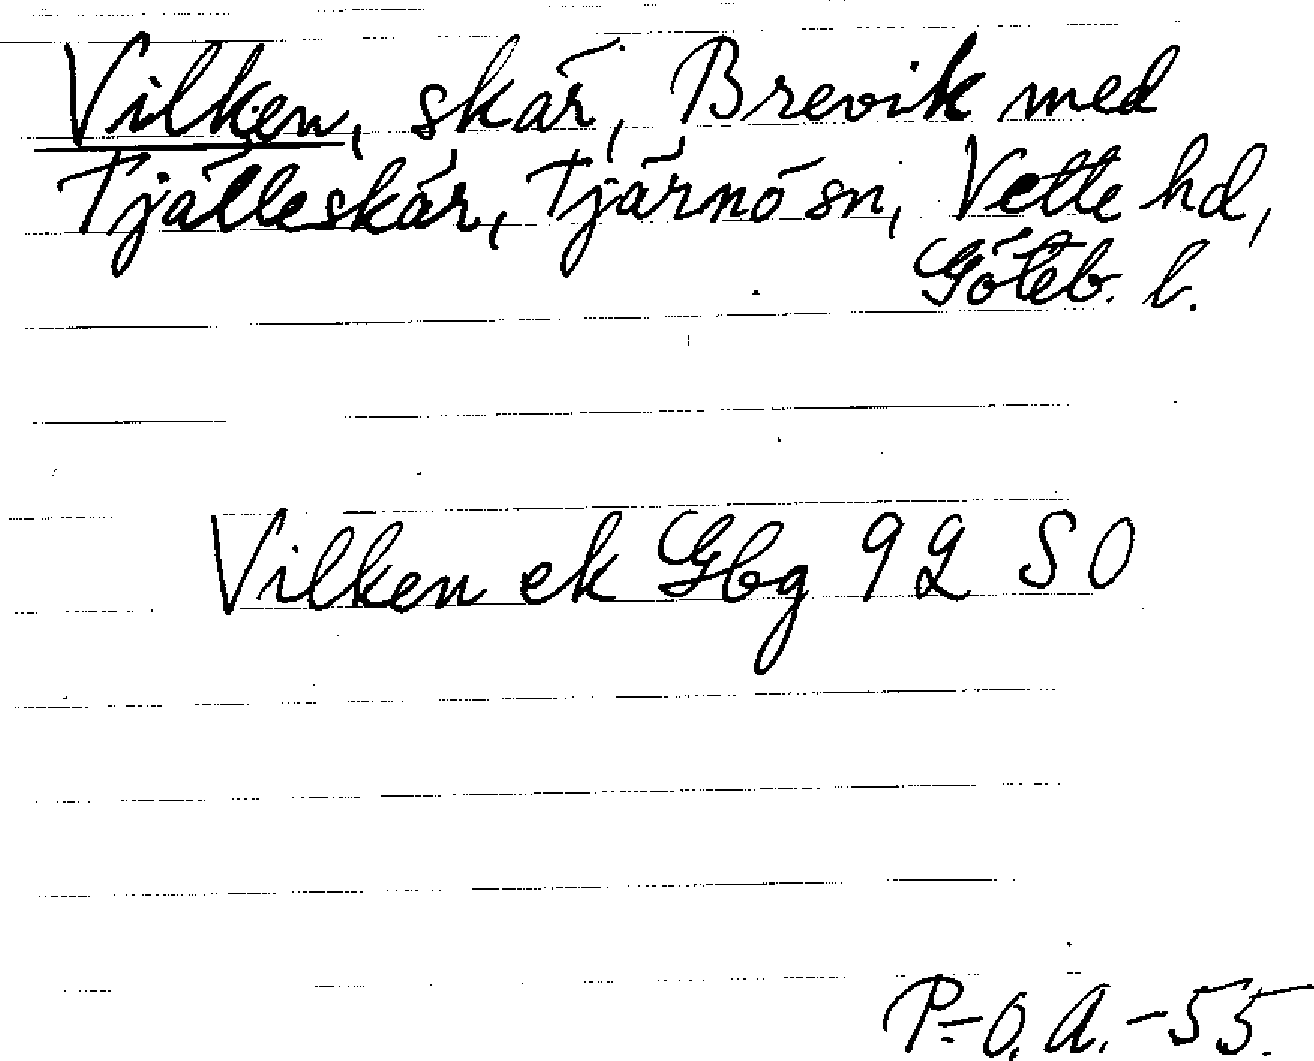 Vilken, skär, Brevik med
Tjälleskär, Tjärnö sn, Vette hd,
Göteb. l.
Vilken ek Gbg 92 SO
P-O. A. -55.